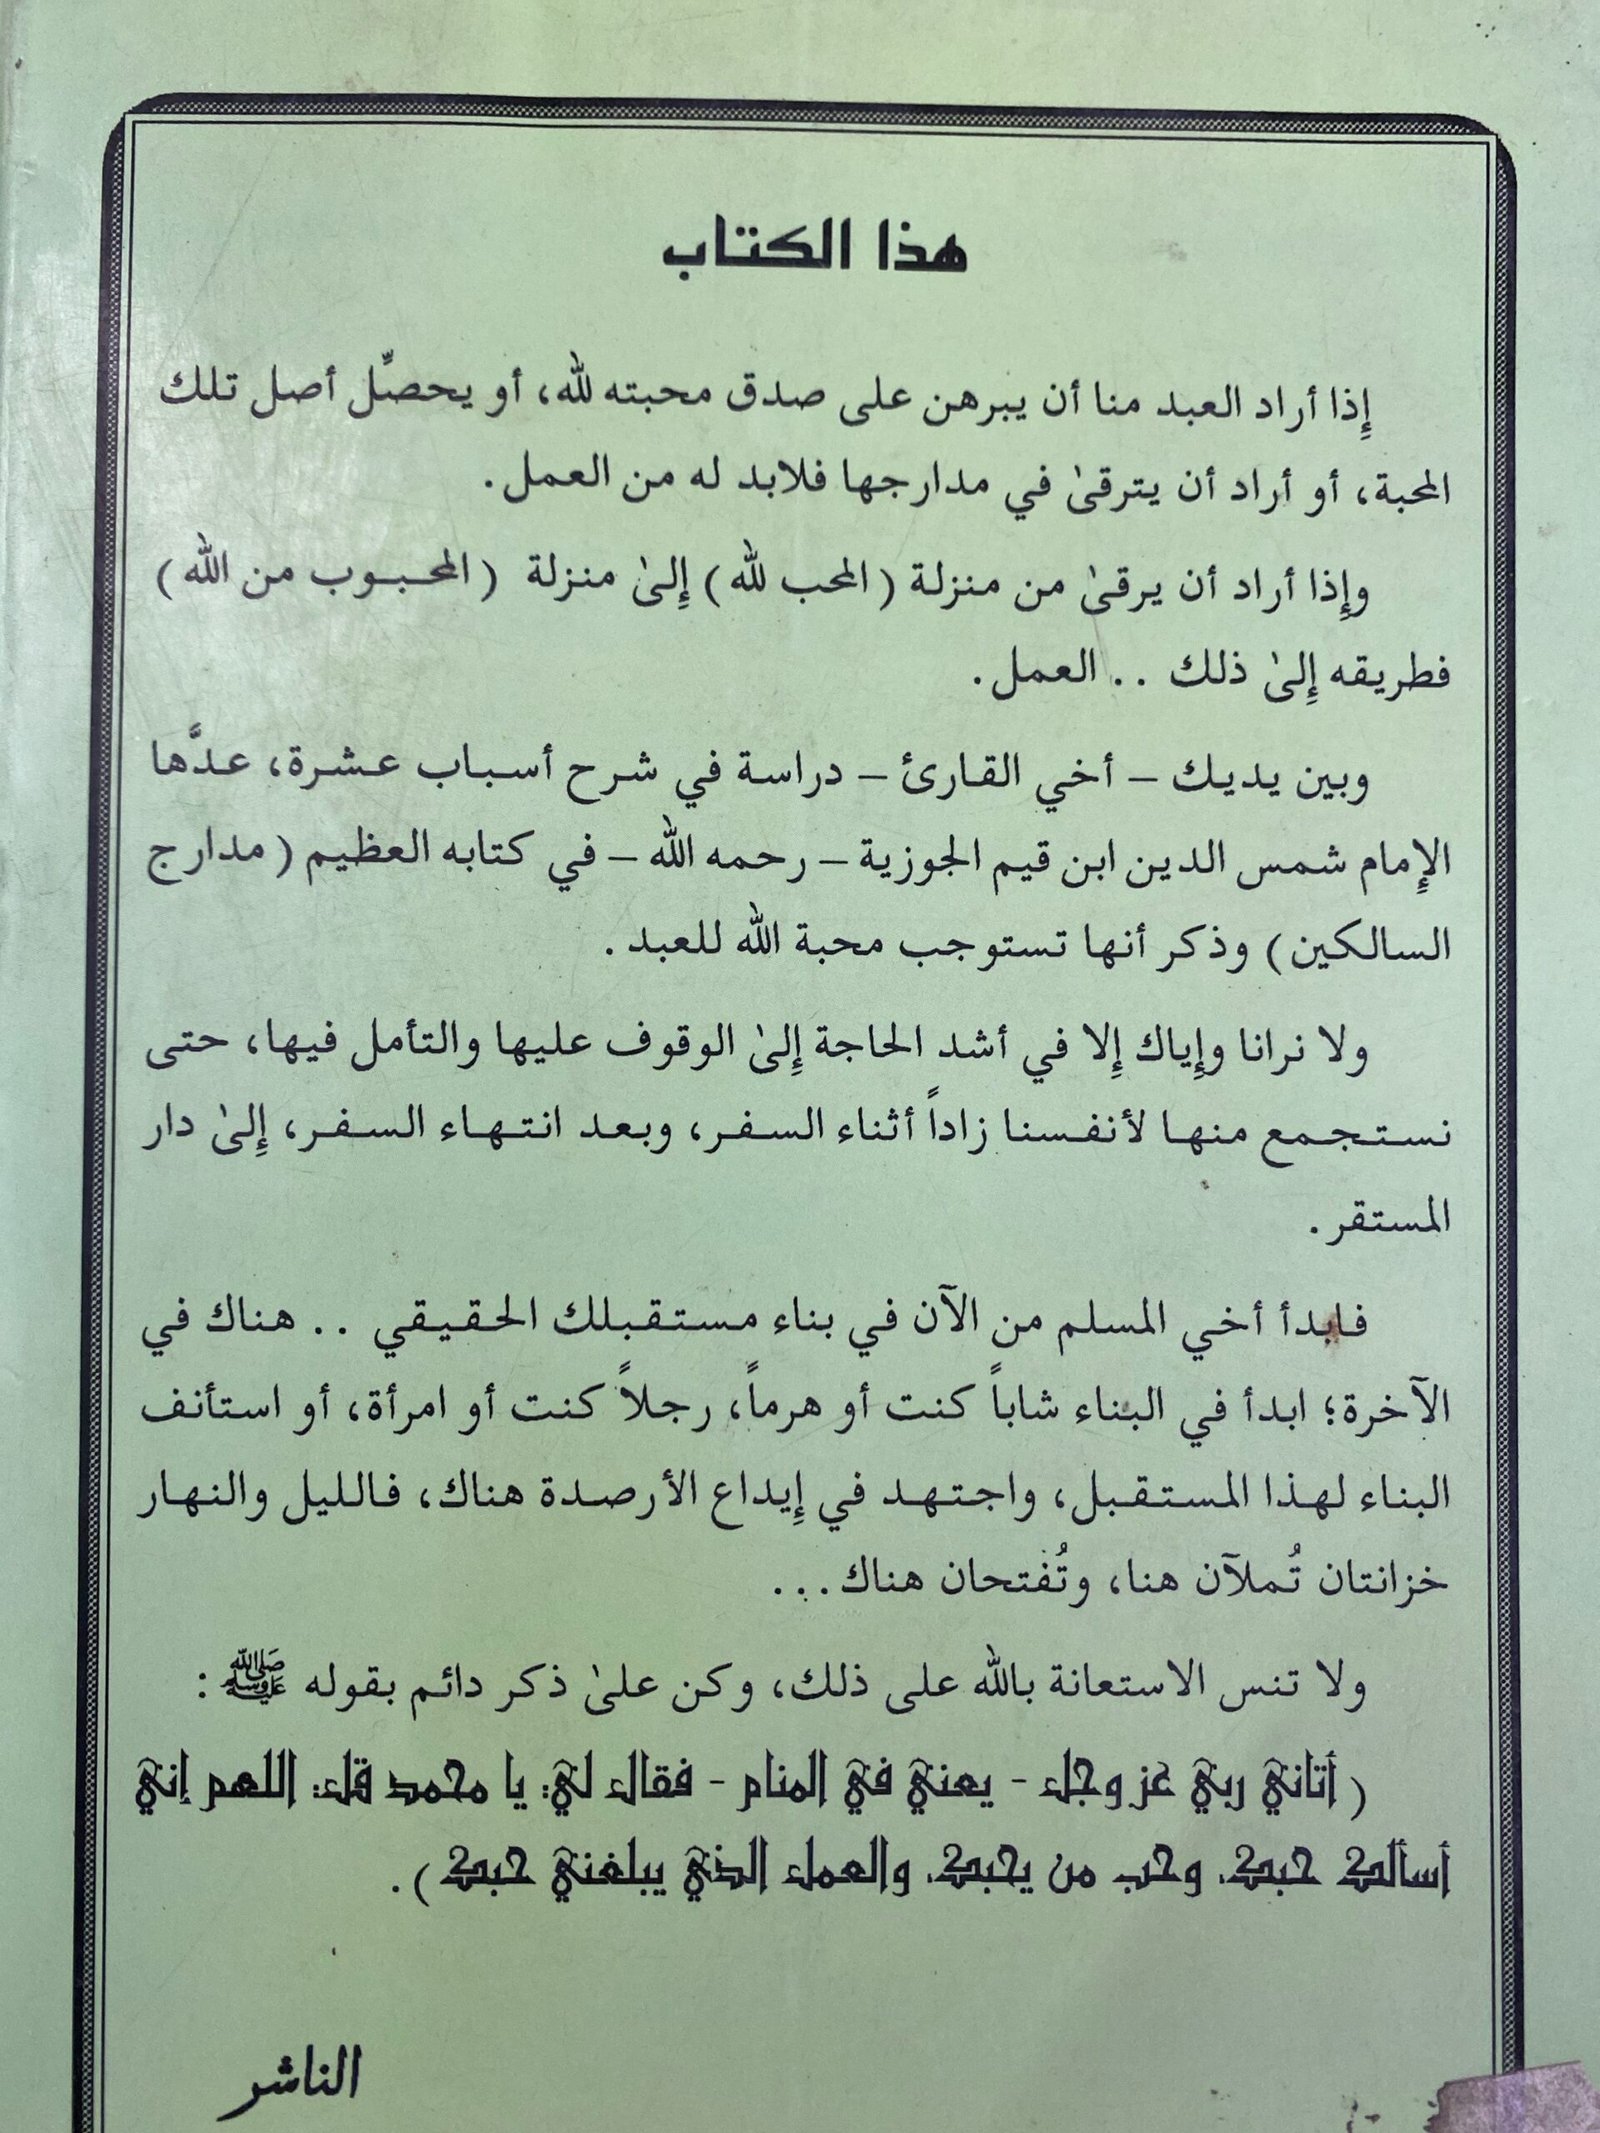 هذا الكتاب
إِذا أراد العبد منا أن يبرهن على صدق محبته لله، أو يحصِّل أصل تلك
المحبة، أو أراد أن يترقىٰ في مدارجها فلابد له من العمل.
وإِذا أراد أن يرقىٰ من منزلة (المحب لله) إِلىٰ منزلة (المحبوب من الله)
فطريقه إِلىٰ ذلك .. العمل.
وبين يديك – أخي القارئ – دراسة في شرح أسباب عشرة، عدَّها
الإِمام شمس الدين ابن قيم الجوزية – رحمه الله – في كتابه العظيم (مدارج
السالكين) وذكر أنها تستوجب محبة الله للعبد.
ولا نرانا وإِياك إِلا في أشد الحاجة إِلىٰ الوقوف عليها والتأمل فيها، حتى
نستجمع منها لأنفسنا زاداً أثناء السفر، وبعد انتهاء السفر، إِلىٰ دار
المستقر.
فابدأ أخي المسلم من الآن في بناء مستقبلك الحقيقي .. هناك في
الآخرة؛ ابدأ في البناء شاباً كنت أو هرماً، رجلاً كنت أو امرأة، أو استأنف
البناء لهذا المستقبل، واجتهد في إِيداع الأرصدة هناك، فالليل والنهار
خزانتان تُملآن هنا، وتُفتحان هناك...
ولا تنس الاستعانة بالله على ذلك، وكن علىٰ ذكر دائم بقوله ﷺ :
( أتاني ربي عز وجل - يعني في المنام - فقال لي: يا محمد قل: اللهم إني
أسألك حبك، وحب من يحبك، والعمل الذي يبلغني حبك ).
الناشر